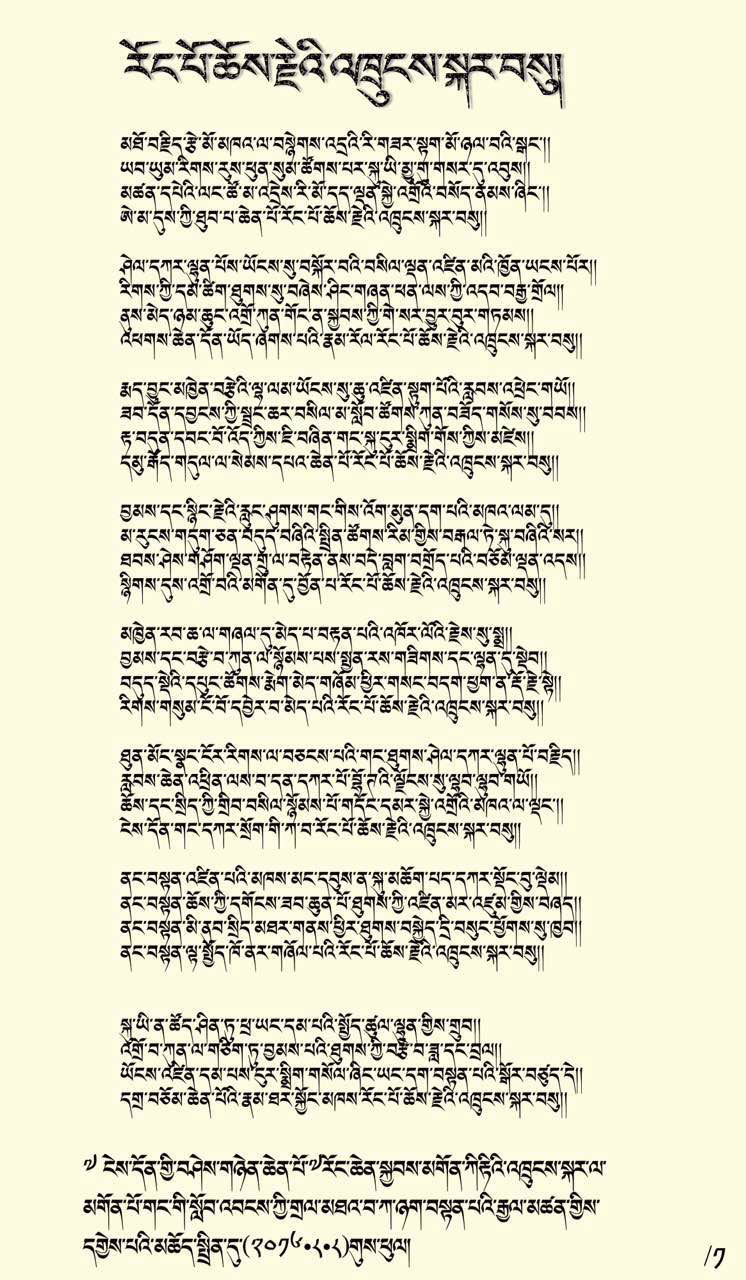 རོང་པོ་ཆོས་རྗེའི་འཁྲུངས་སྐར་བསུ།
མཐོ་བརྗིད་རྩེ་མོ་མཁའ་ལ་བསྙེགས་འདྲའི་རི་གཟར་སྟག་མོ་ཉལ་བའི་སྒང་།།
ཡབ་ཡུམ་རིགས་རུས་ཕུན་སུམ་ཚོགས་པར་སྐུ་ཡི་མྱུ་གུ་གསར་དུ་འབུས།།
མཚན་དཔེའི་ལང་ཚོ་མ་འདྲེས་རི་མོ་དད་ལྡན་སྐྱེ་འགྲོའི་བསོད་ནམས་ཞིང་།།
ཨེ་མ་དུས་ཀྱི་ཐུབ་པ་ཆེན་པོ་རོང་པོ་ཆོས་རྗེའི་འཁྲུངས་སྐར་བསུ།།
ཤེལ་དཀར་ལྷུན་པོས་ཡོངས་སུ་བསྐོར་བའི་བསིལ་ལྡན་འཛིན་མའི་ཁྱོན་ཡངས་པོར།།
རིགས་ཀྱི་དམ་ཚིག་ཐུགས་སུ་བཞེས་ཤིང་གཞན་ཕན་ལས་ཀྱི་འདབ་བརྒྱ་གྲོལ།།
ནུས་མེད་ཉམ་ཆུང་འགྲོ་ཀུན་གོང་ན་སྐྱབས་ཀྱི་གེ་སར་བྱུར་བུར་གཏམས།།
འཕགས་ཆེན་དོན་ཡོད་ཞགས་པའི་རྣམ་རོལ་རོང་པོ་ཆོས་རྗེའི་འཁྲུངས་སྐར་བསུ།།
རྨད་བྱུང་མཁྱེན་བརྩེའི་ལྷ་ལམ་ཡོངས་སུ་ཆུ་འཛིན་སྟུག་པོའི་རླབས་འཕྲེང་གཡོ།།
ཟབ་དོན་དབྱངས་ཀྱི་སྦྲང་ཆར་བསིལ་མ་སློབ་ཚོགས་ཀུན་བཟོད་གསོས་སུ་བབས།།
རྟ་བདུན་དབང་པོ་འོད་ཀྱིས་ཇི་བཞིན་གང་སྐུ་ངུར་སྨྲིག་གོས་ཀྱིས་མཛེས།།
དམུ་རྒོད་གདུལ་ལ་སེམས་དཔའ་ཆེན་པོ་རོང་པོ་ཆོས་རྗེའི་འཁྲུངས་སྐར་བསུ།།
བྱམས་དང་སྙིང་རྗེའི་རླུང་ཤུགས་གང་གིས་འོག་མུན་དག་པའི་མཁའ་ལམ་དུ།།
མ་རུངས་གདུག་ཅན་བདུད་བཞིའི་སྤྲིན་ཚོགས་རིམ་གྱིས་བརྒལ་ཏེ་སྐུ་བཞིའི་སར།།
ཐབས་ཤེས་གཤོག་ལྡན་གྲུ་ལ་བརྟེན་ནས་བདེ་བླག་བགྲོད་པའི་བཅོམ་ལྡན་འདས།།
སྙིགས་དུས་འགྲོ་བའི་མགོན་དུ་བྱོན་པ་རོང་པོ་ཆོས་རྗེའི་འཁྲུངས་སྐར་བསུ།།
མཁྱེན་རབ་ཆ་ལ་གཞལ་དུ་མེད་པ་བརྟན་པའི་འཁོར་ལོའི་རྗེས་སུ་སྨྲ།།
བྱམས་དང་བརྩེ་བ་ཀུན་ལ་སྙོམས་པས་སྤྱན་རས་གཟིགས་དང་ལྷན་དུ་སྡེབ།།
བདུད་སྡེའི་དཔུང་ཚོགས་རྨེག་མེད་གཞོམ་ཕྱིར་གསང་བདག་ཕྱག་ན་རྡོ་རྗེ་སྟེ།།
རིགས་གསུམ་ངོ་བོ་དབྱེར་བ་མེད་པའི་རོང་པོ་ཆོས་རྗེའི་འཁྲུངས་སྐར་བསུ།།
ཐུན་མོང་སྣང་ངོར་རིགས་ལ་བཅངས་པའི་གང་ཐུགས་ཤེལ་དཀར་ལྷུན་པོ་བརྗིད།།
རླབས་ཆེན་འཕྲིན་ལས་བ་དན་དཀར་པོ་བྷོ་ཊའི་ལྗོངས་སུ་ལྷབ་ལྷབ་གཡོ།།
ཆོས་དང་སྲིད་ཀྱི་གྲིབ་བསིལ་སྙོམས་པོ་གདོང་དམར་སྐྱེ་འགྲོའི་མཁའ་ལ་ལྡང་།།
ངེས་དོན་གང་དཀར་སྲོག་གི་ཀ་བ་རོང་པོ་ཆོས་རྗེའི་འཁྲུངས་སྐར་བསུ།།
ནང་བསྟན་འཛིན་པའི་མཁས་མང་དབུས་ན་སྐུ་མཆོག་པད་དཀར་སྡོང་བུ་ལྡེམ།།
ནང་བསྟན་ཆོས་ཀྱི་དགོངས་ཟབ་ཆུན་པོ་ཐུགས་ཀྱི་འཛིན་མར་འཛུམ་གྱིས་བཞད།།
ནང་བསྟན་མི་ནུབ་སྲིད་མཐར་གནས་ཕྱིར་ཐུགས་བསྐྱེད་དྲི་བསུང་ཕྱོགས་སུ་ཁྱབ།།
ནང་བསྟན་ལྟ་སྤྱོད་ཁོ་ནར་གཞོལ་པའི་རོང་པོ་ཆོས་རྗེའི་འཁྲུངས་སྐར་བསུ།།
སྐུ་ཡི་ན་ཚོད་ཤིན་ཏུ་ཕྲ་ཡང་དམ་པའི་སྤྱོད་ཚུལ་ལྷུན་གྱིས་གྲུབ།།
འགྲོ་བ་ཀུན་ལ་གཅིག་ཏུ་བྱམས་པའི་ཐུགས་ཀྱི་བརྩེ་བ་ཟླ་དང་བྲལ།།
ཡོངས་འཛིན་དམ་པས་ངུར་སྨྲིག་གསོལ་ཞིང་ཡང་དག་བསྟན་པའི་སྒོར་བཙུད་དེ།།
དགྲ་བཅོམ་ཆེན་པོའི་རྣམ་ཐར་སྐྱོང་མཁས་རོང་པོ་ཆོས་རྗེའི་འཁྲུངས་སྐར་བསུ།།
༧ ངེས་དོན་གྱི་བཤེས་གཉེན་ཆེན་པོ་༧རོང་ཆེན་སྐྱབས་མགོན་ཀིརྟིའི་འཁྲུངས་སྐར་ལ་
མགོན་པོ་གང་གི་སློབ་འབངས་ཀྱི་གྲལ་མཐའ་བ་ཀ་ཉག་བསྟན་པའི་རྒྱལ་མཚན་གྱིས་
དགྱེས་པའི་མཆོད་སྤྲིན་དུ་(༢༠༡༦.༨.༨)གུས་ཕུལ།